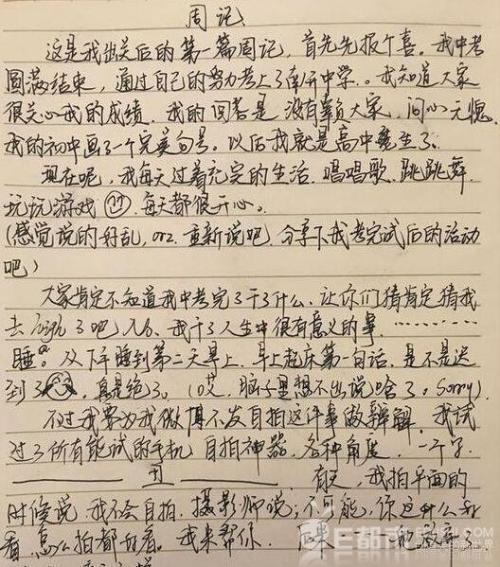 周记
这是我出关后的第一篇周记，首先先报个喜。我中考
圆满结束，通过自己的努力考上了南开中学。我知道大家
很关心我的成绩，我的回答是没有辜负大家，问心无愧
我的初中画了一个完美句号。以后我就是高中生了。
现在呢，我每天过着充实的生活，唱唱歌，跳跳舞
玩玩游戏，每天都很开心。
(感觉说的好乱，orz，重新说吧，分享下我考完试后的活动
吧)
大家肯定不知道我中考完了干了什么，让你们猜肯定猜我
去high了吧，No，我干了人生中很有意义的事………
睡。从下午睡到第二天早上，早上起床第一句话，是不是迟
到了，真是绝了。(哎，脑子里想不出说啥了，Sorry)
不过我要为我微博不发自拍这件事做辩解，我试
过了所有能试的手机，自拍神器，各种角度，一个字
丑
有天，我拍平面的
时候说，我不会自拍，摄影师说：不可能，你这种怎么
看，怎么拍都好看。我来帮你。
他放弃了